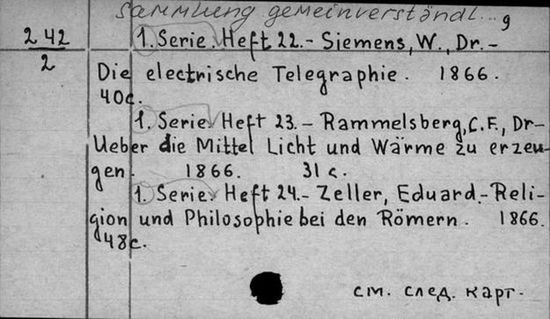 Sammlung gemeinverständl... 9
242
2
1. Serie. Heft 22.- Siemens, W., Dr.-
Die electrische Telegraphie. 1866.
40с.
1. Serie. Heft 23.- Rammelsberg, C.F., Dr-
Ueber die Mittel Licht und Wärme zu erzeu-
gen. 1866. 31с.
1. Serie. Heft 24.- Zeller, Eduard.- Reli-
gion und Philosophie bei den Römern. 1866.
48с.
см. след. карт.